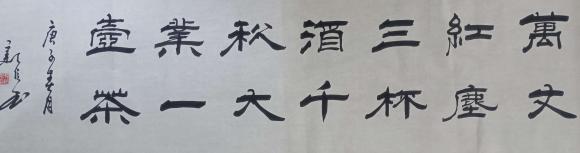 萬丈
紅塵
三杯
酒千
秋大
業一
壺茶
庚子春月
书